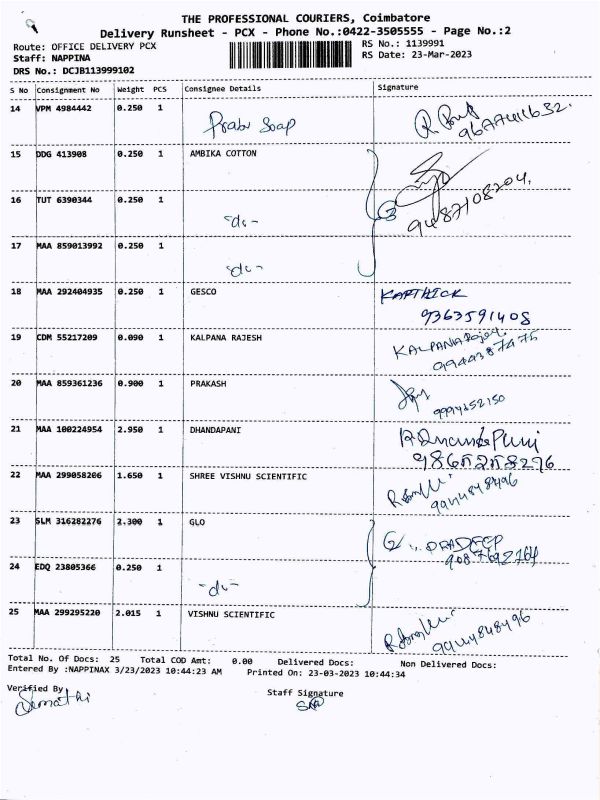 THE PROFESSIONAL COURIERS, Coimbatore
Delivery Runsheet - PCX - Phone No.:0422-3505555 - Page No.:2
Route: OFFICE DELIVERY PCX
RS No.: 1139991
Staff: NAPPINA
RS Date: 23-Mar-2023
DRS No.: DCJB113999102
S No Consignment No Weight PCS Consignee Details Signature
14 VPM 4984442 0.250 1 Prabu Soap
15 DDG 413908 0.250 1 AMBIKA COTTON
16 TUT 6390344 0.250 1 -do-
9487108204.
17 MAA 859013992 0.250 1 -do-
18 MAA 292404935 0.250 1 GESCO KARTHICK
9363591408
19 CDM 55217209 0.090 1 KALPANA RAJESH KALPANA Rajesh
9944387475
20 MAA 859361236 0.900 1 PRAKASH
9994352150
21 MAA 100224954 2.950 1 DHANDAPANI
22 MAA 299058206 1.650 1 SHREE VISHNU SCIENTIFIC
9944848496
23 SLM 316282276 2.300 1 GLO PRADEEP
9087692764
24 EDQ 23805366 0.250 1 -do-
25 MAA 299295220 2.015 1 VISHNU SCIENTIFIC
9944848496
Total No. Of Docs: 25 Total COD Amt: 0.00 Delivered Docs: Non Delivered Docs:
Entered By :NAPPINAX 3/23/2023 10:44:23 AM Printed On: 23-03-2023 10:44:34
Verified By
Staff Signature